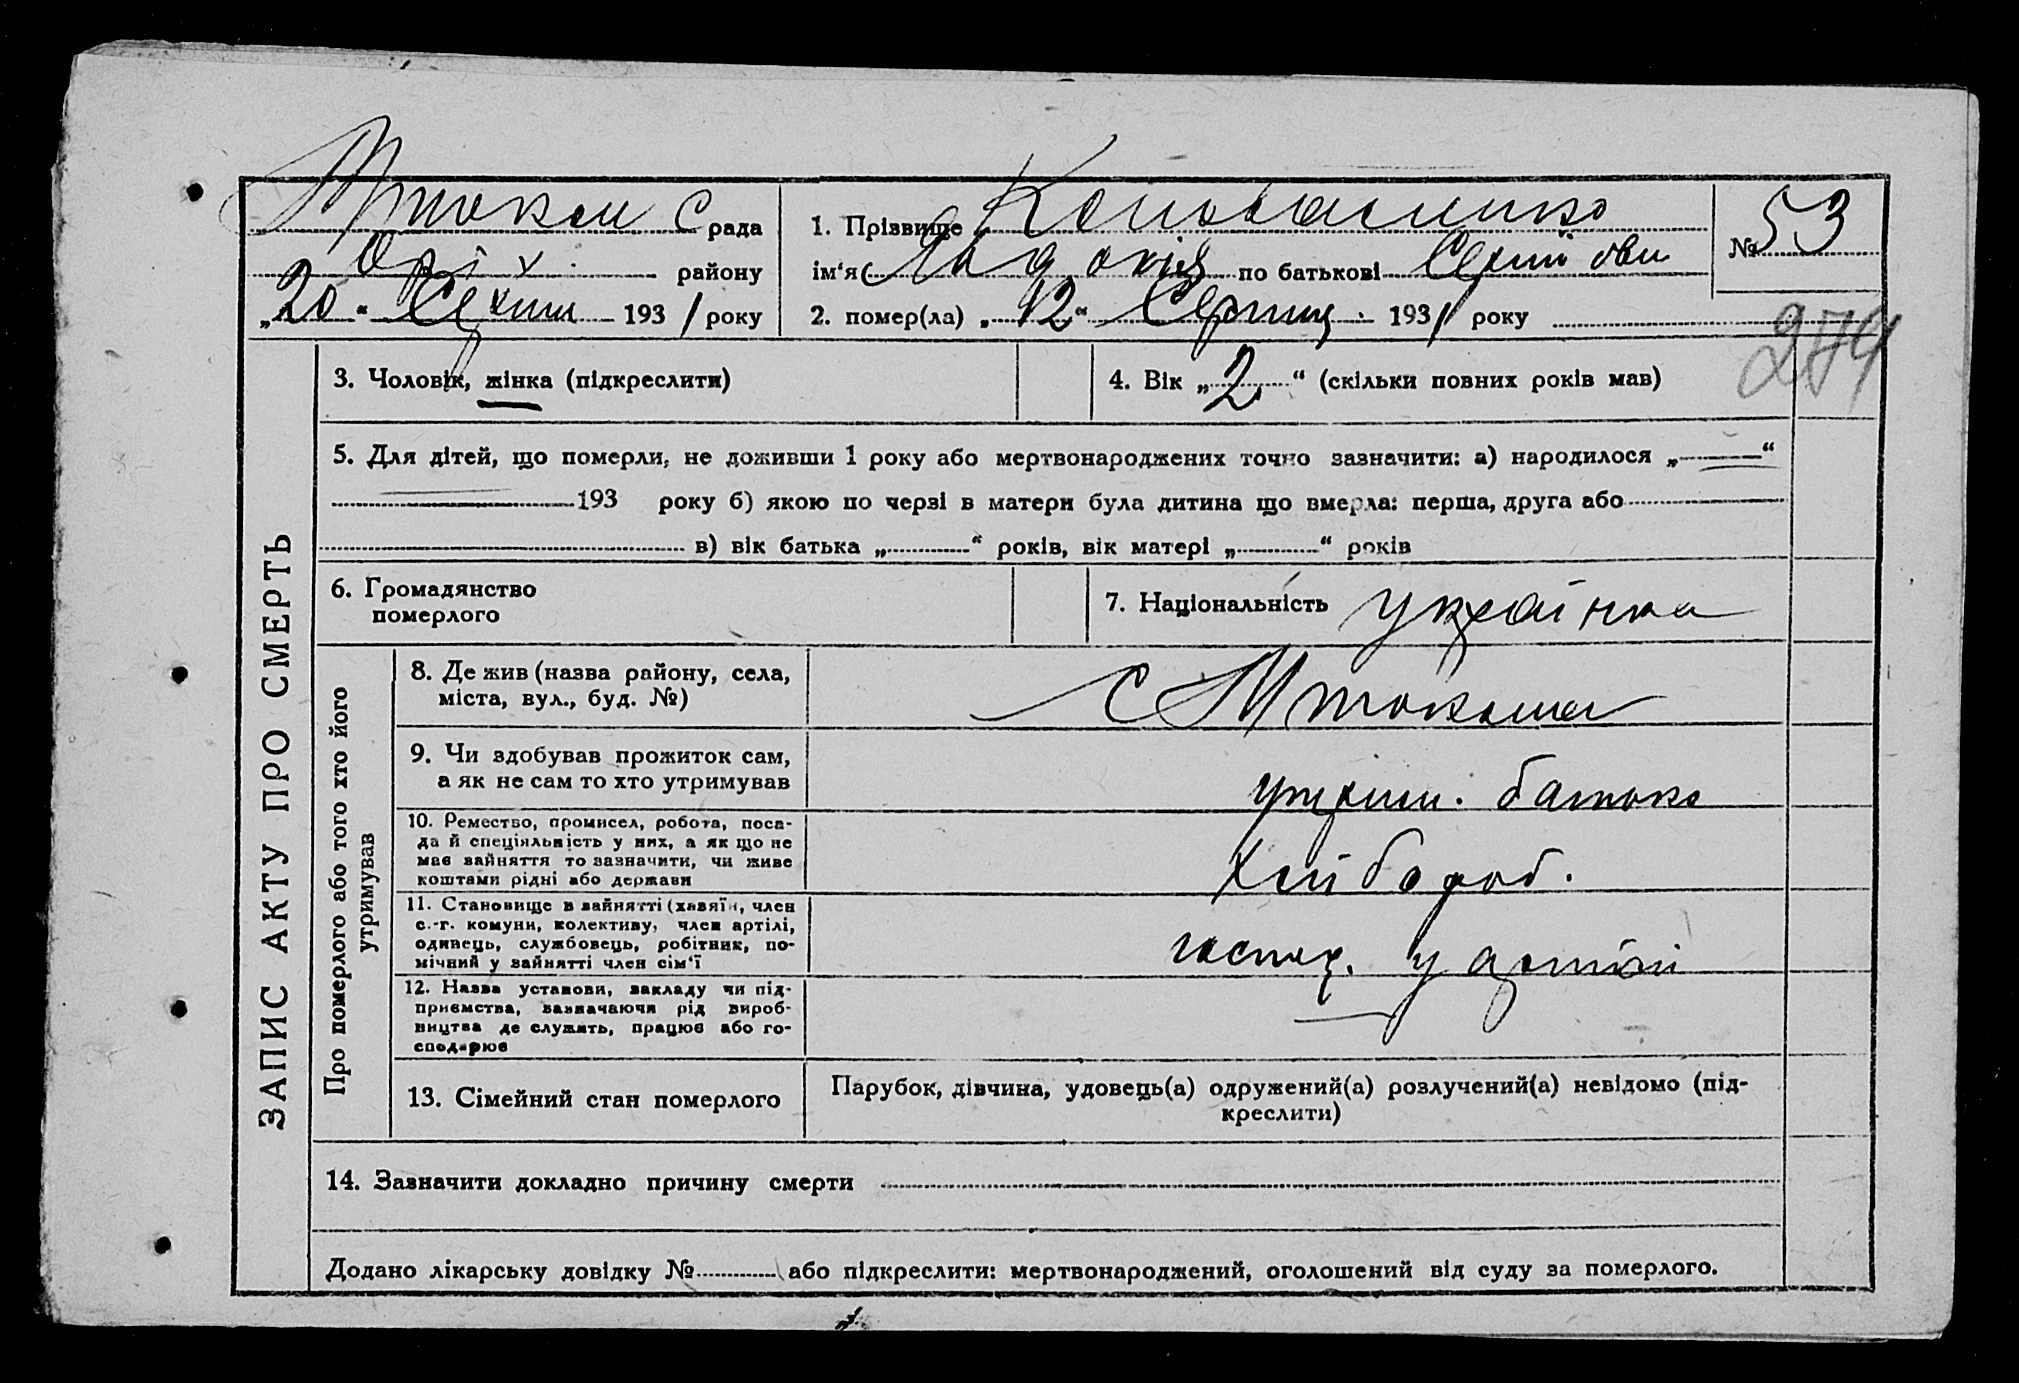 С рада
Оріх. району
„20“ Серпня 1931 року
1. Прізвище Коноваленко
ім‘я Явдокія по батькові
2. помер(ла) „12“ Серпня 1931 року
№ 53
274
3. Чоловік, жінка (підкреслити)
4. Вік „2“ (скільки повних років мав)
5. Для дітей, що померли, не доживши 1 року або мертвонароджених точно зазначити: а) народилося „ “
193 року б) якою по черзі в матери була дитина що вмерла: перша, друга або
в) вік батька „ “ років, вік матері „ “ років
6. Громадянство
померлого
7. Національність українка
ЗАПИС АКТУ ПРО СМЕРТЬ
Про померлого або того хто його
утримував
8. Де жив (назва району, села,
міста, вул., буд. №)
с
9. Чи здобував прожиток сам,
а як не сам то хто утримував
утрим. батько
10. Ремество, промисел, робота, поса-
да й спеціяльність у них, а як що не
має зайняття то зазначити, чи живе
коштами рідні або держави
хлібороб.
11. Становище в зайнятті (хазяїн, член
с.-г. комуни, колективу, член артілі,
одинець, службовець, робітник, по-
мічний у зайнятті член сім‘ї
господ. у артілі
12. Назва установи, закладу чи під-
приємства, зазначаючи рід вироб-
ництва де служать, працює або го-
сподарює
13. Сімейний стан померлого
Парубок, дівчина, удовець(а) одружений(а) розлучений(а) невідомо (під-
креслити)
14. Зазначити докладно причину смерти
Додано лікарську довідку № або підкреслити: мертвонароджений, оголошений від суду за померлого.